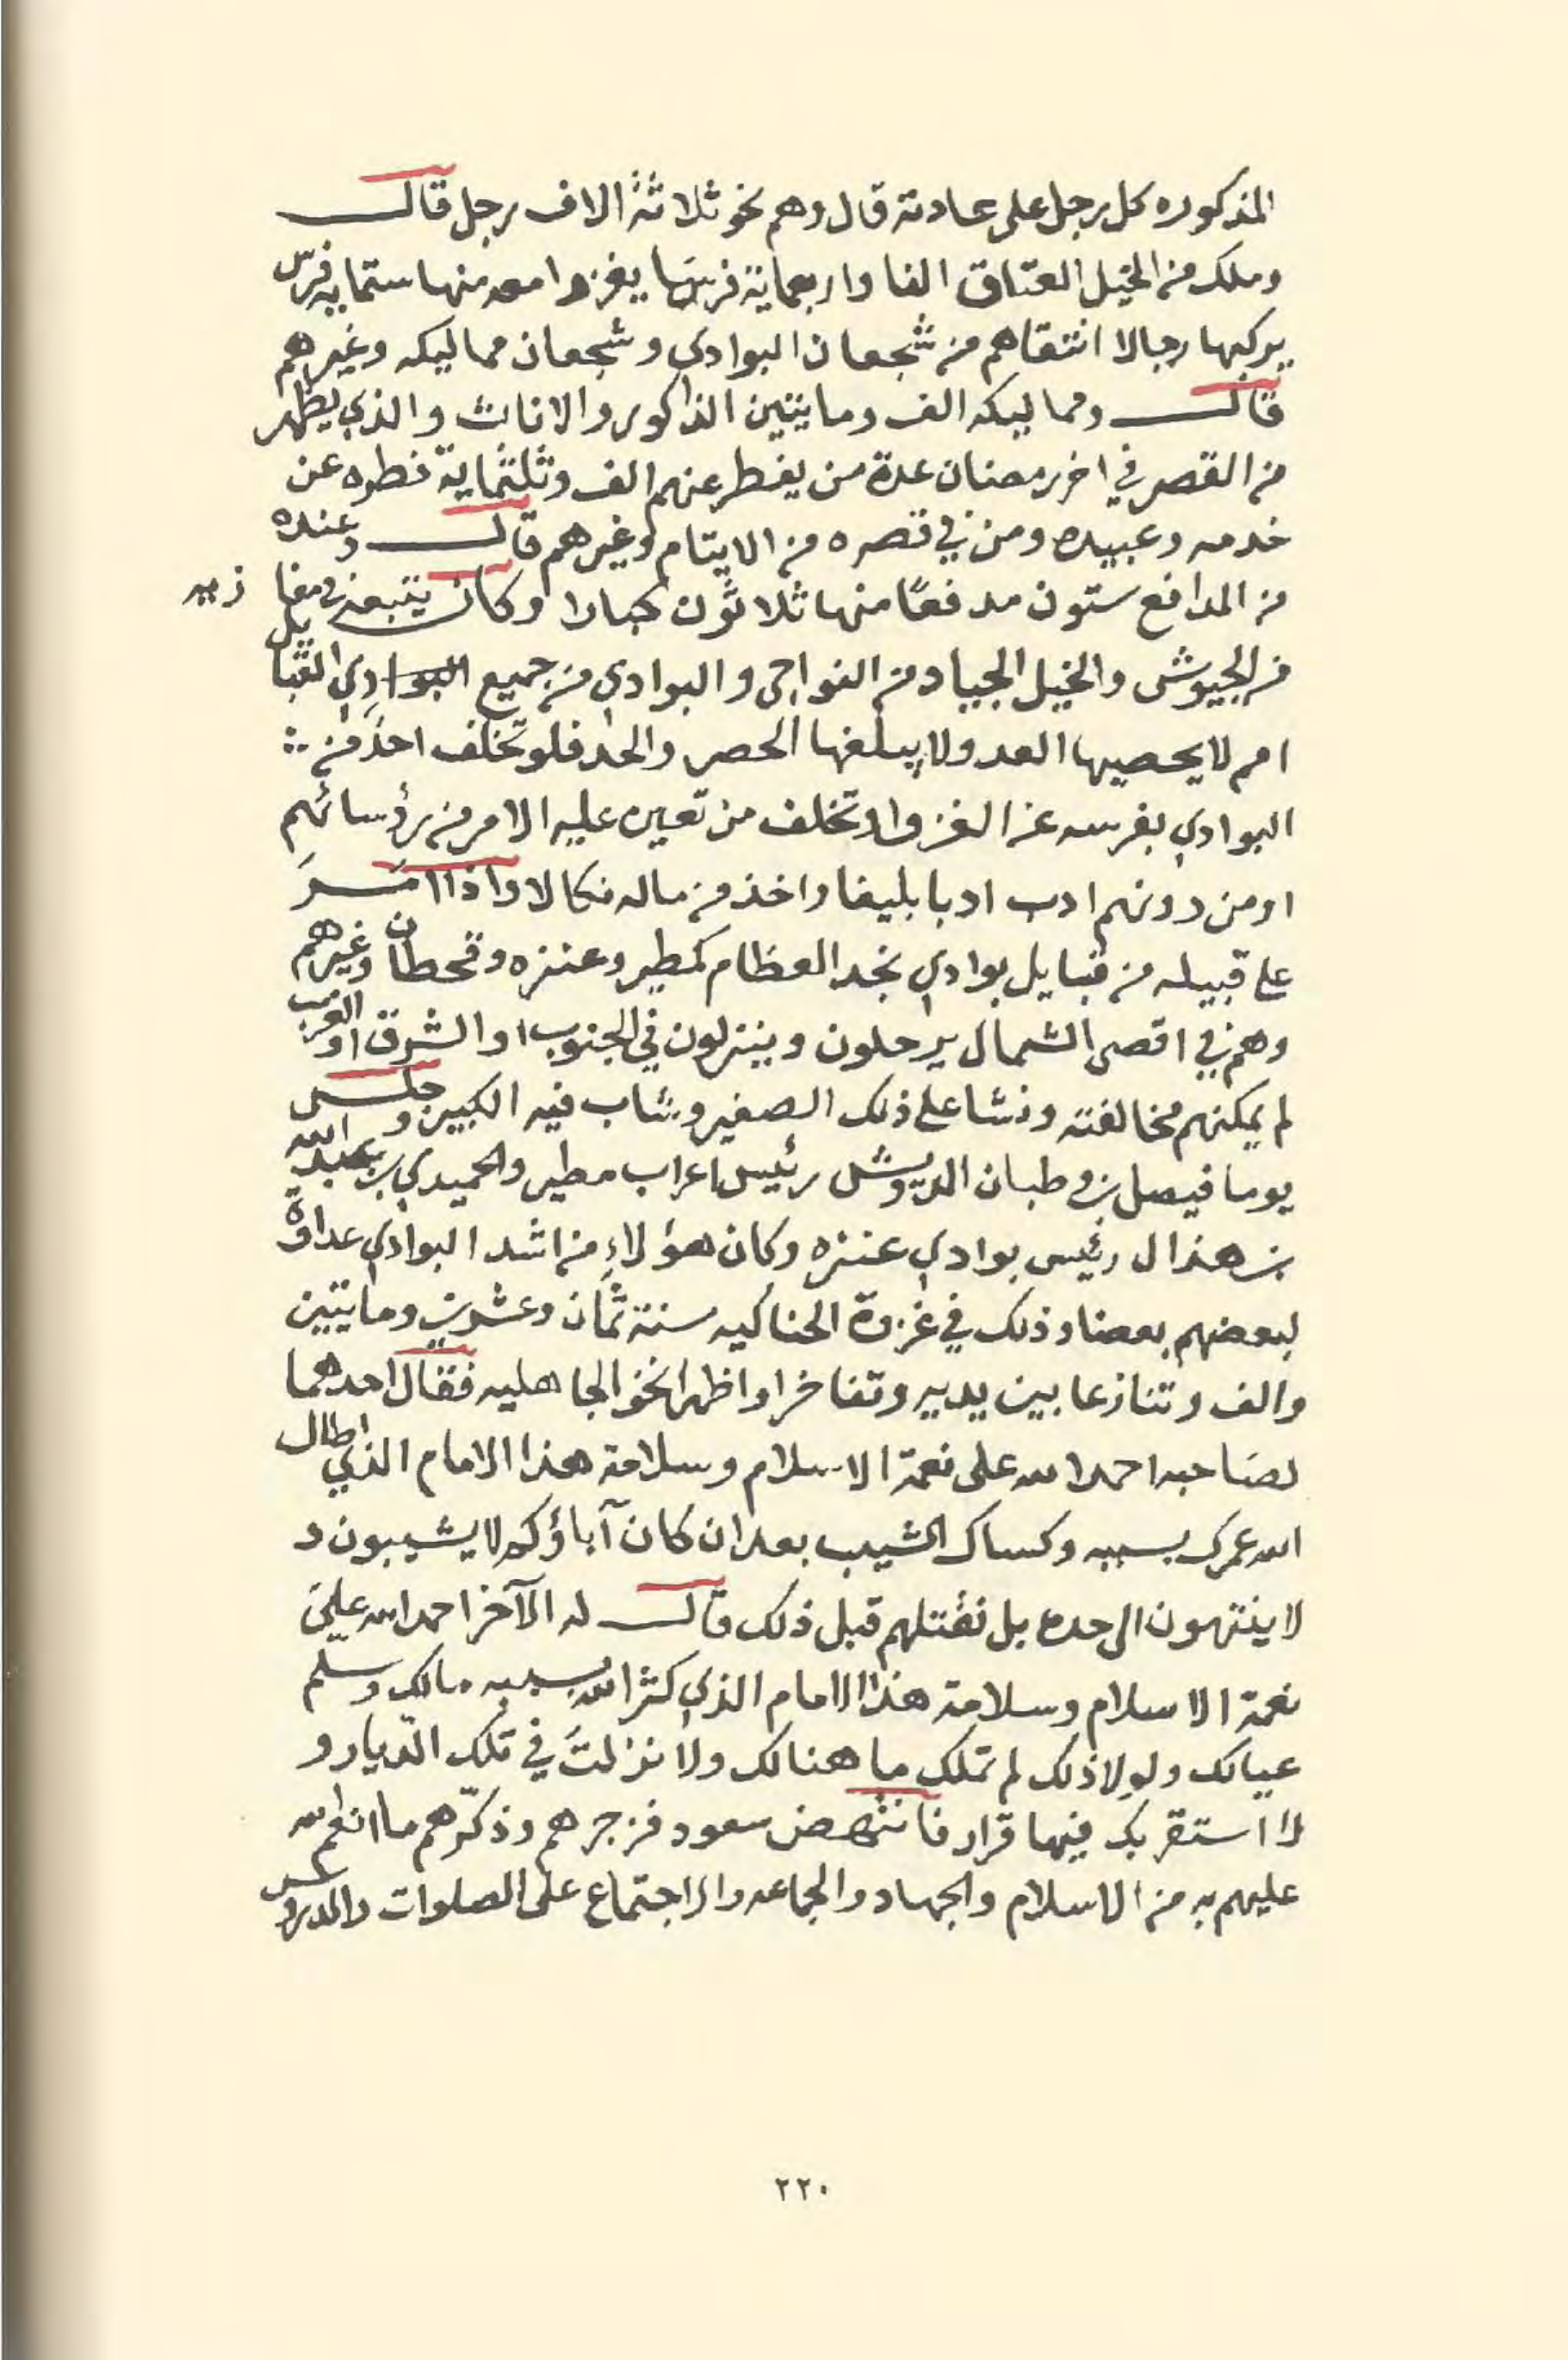 المذكوره كل رجل على عادته قال وهم نحو ثلاثة الاف رجل قال
وملك من الخيل العتاق الفا واربعماية فرسًا يغزوا معه منها ستماية فرس
يركبها رجالا انتقاهم من شجعان البوادي وشجعان مماليكه وغيرهم
قال ومماليكه الف ومايتين الذاكور والاناث والذي يظهر
من القصر في اخر رمضان عدة من يفطر عنهم الف وثلثماية فطره عن
خدمه وعبيده ومن في قصره من الايتام وغيرهم قال وعنده
من المدافع ستون مدفعًا منها ثلاثون كبارا وكان يتبعه في مغازيه
من الجيوش والخيل الجياد من النواحي والبوادي من جميع البوادي القبايل
امم لا يحصيها العد ولا يبلغها الحصر والحد فلو تخلف احد من
البوادي بفرسه عن الغزو او تخلف من تعين عليه الامر من رؤسائهم
او من دونهم ادب ادبا بليغا واخذ من ماله نكالا واذا امَرَ
على قبيله من قبايل بوادي نجد العظام كمطير وعنزه وقحطان وغيرهم
وهم في اقصى الشمال يرحلون وينزلون في الجنوب او الشرق او الغرب
لم يمكنهم مخالفته ونشا على ذلك الصغير وشاب فيه الكبير وجلس
يوما فيصل بن وطبان الدويش رئيس اعراب مطير والحميدي بن عبدالله
بن هذال رئيس بوادي عنزه وكان هؤلاءِ من اشد البوادي عداوة
لبعضهم بعضا وذلك في غزوة الحناكيه سنة ثمان وعشرين ومايتين
والف وتنازعا بين يديه وتفاخرا واظهرا نخو الجاهليه فقال احدهما
لصاحبه احمد الله على نعمة الاسلام وسلامة هذا الامام الذي اطال
الله عمرك بسببه وكساك الشيب بعد ان كان آباؤك لا يشيبون و
لا ينتهون الى حده بل نقتلهم قبل ذلك قال له الآخر احمد الله على
نعمة الاسلام وسلامة هذا الامام الذي كثر الله بسببه مالك وسلم
عيالك ولولا ذلك لم تملك ما هنالك ولا نزلتَ في تلك الديار و
لا استقر بك فيها قرار فانتهض سعود فزجرهم وذكّرهم ما انعم الله
عليهم به من الاسلام والجهاد والجماعه والاجتماع على الصلوات والدروس
٢٢٠